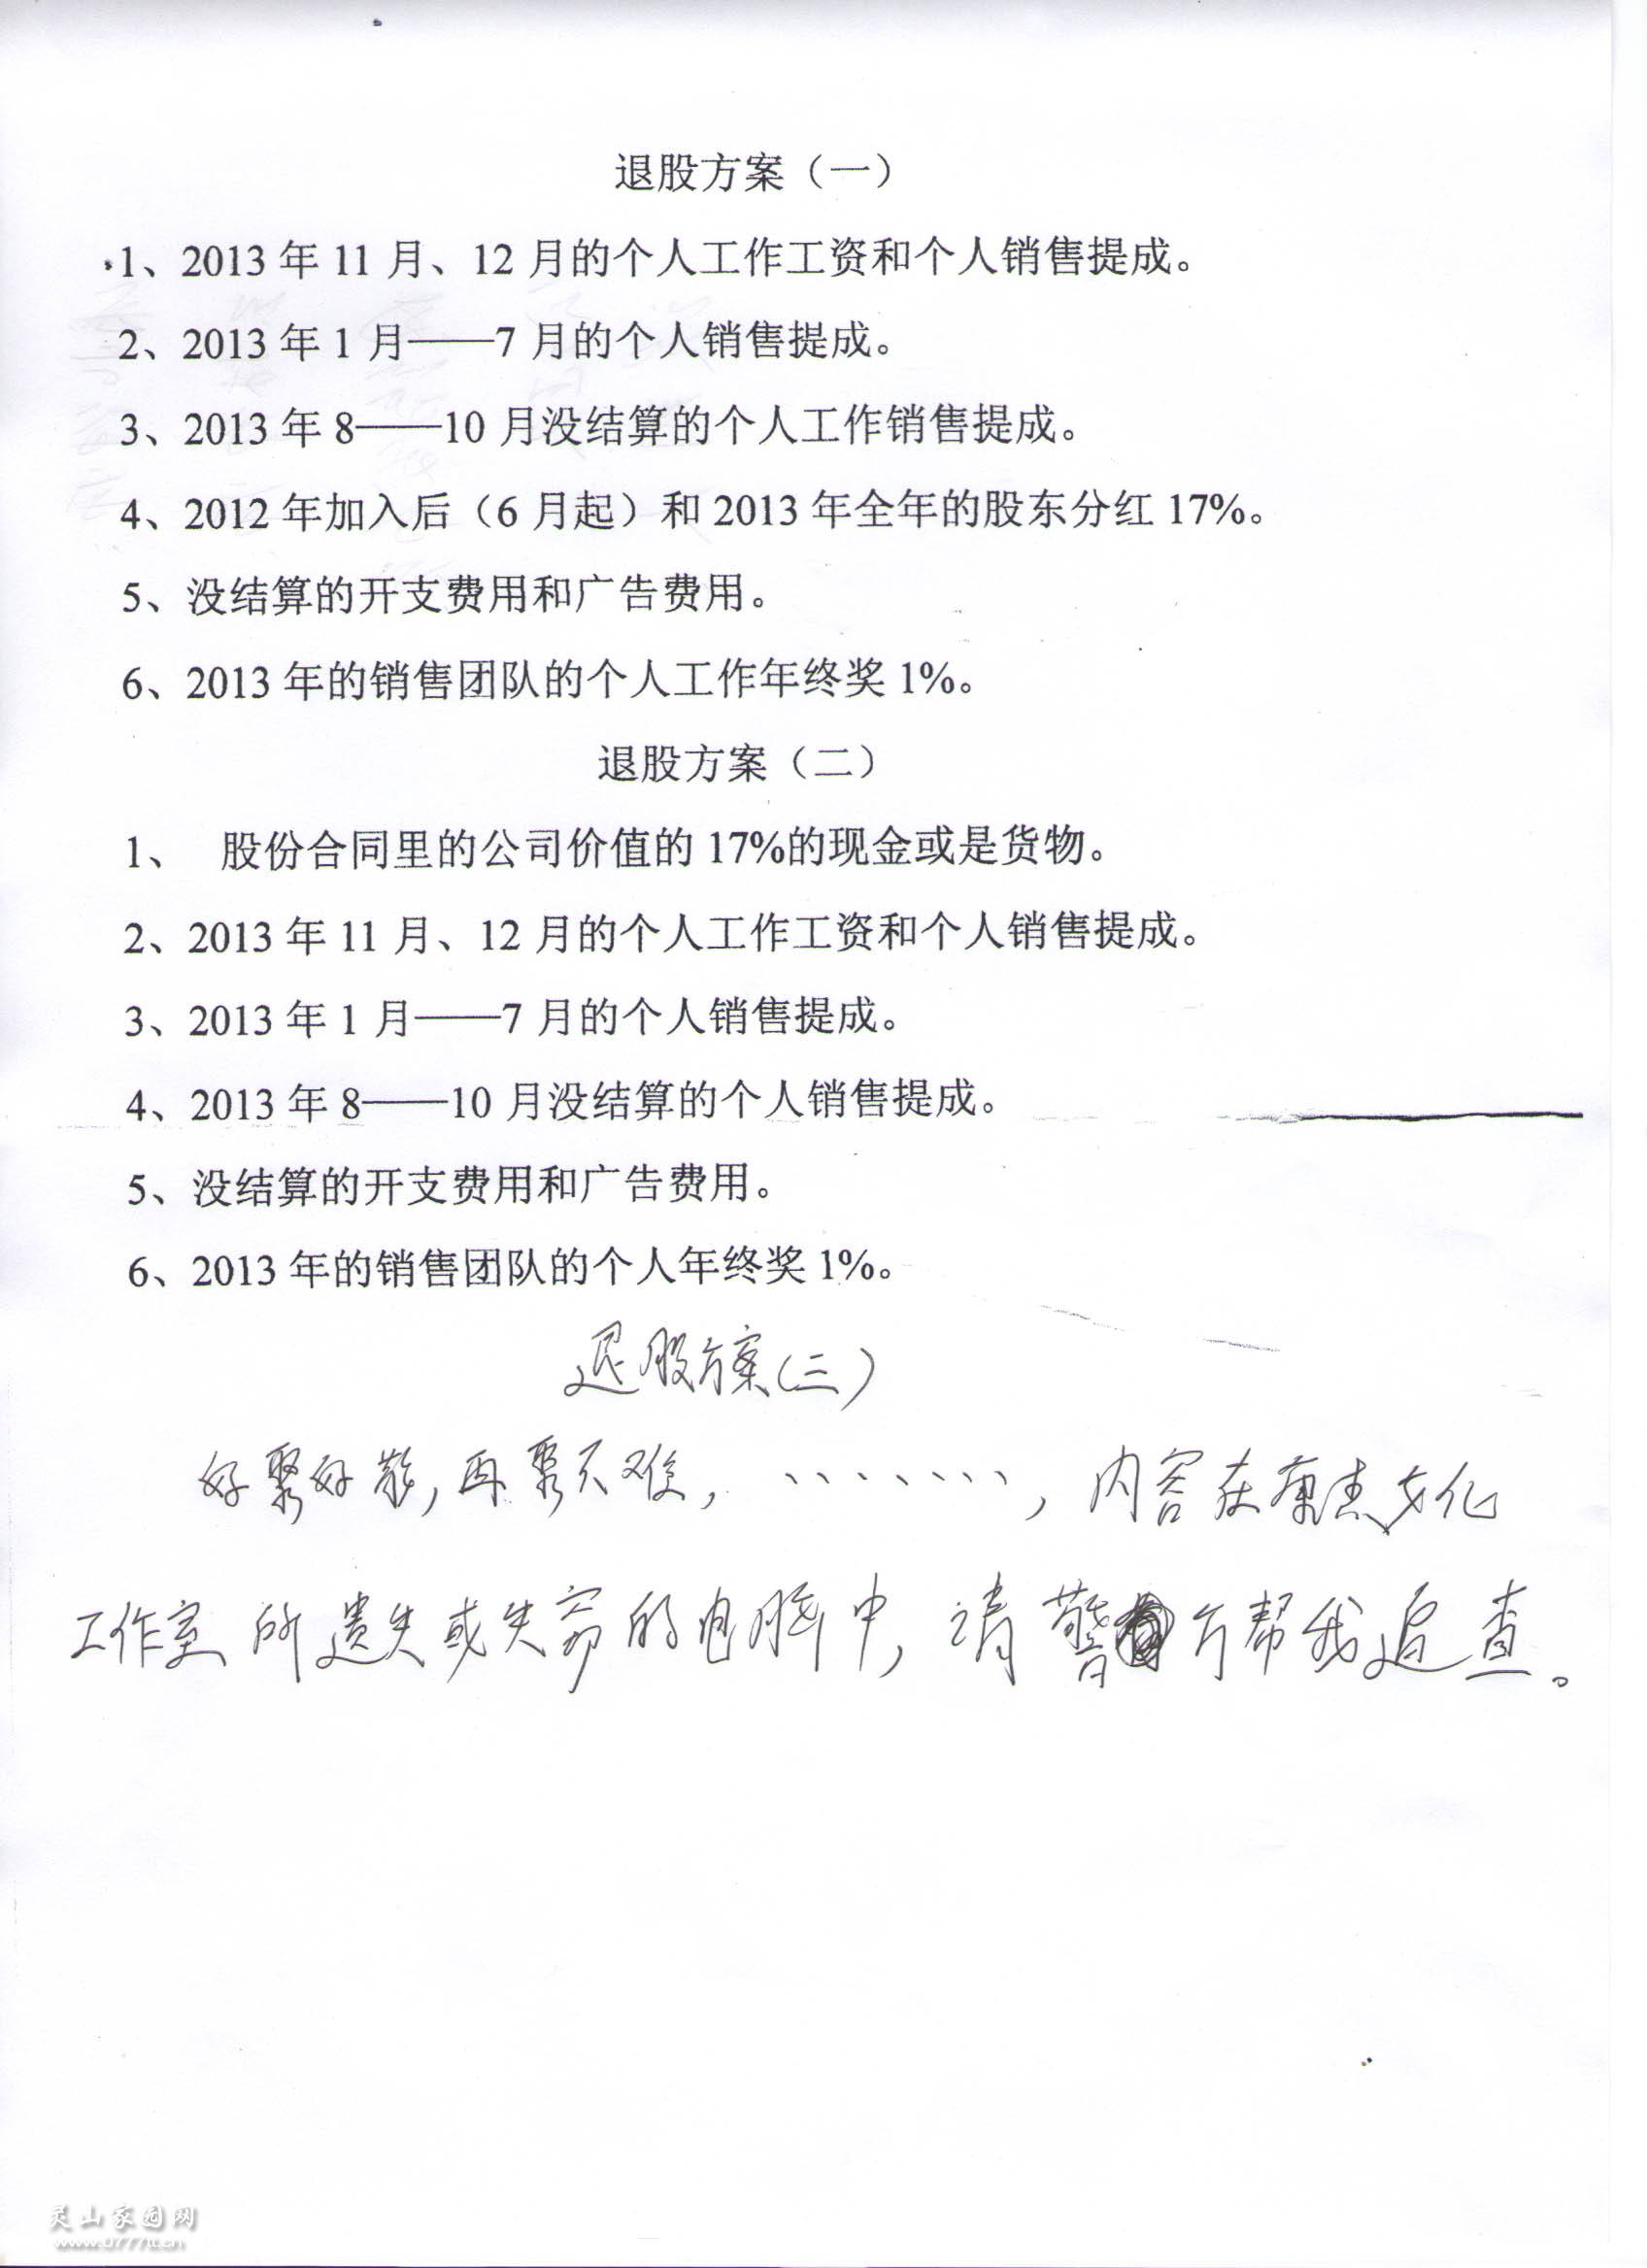 退股方案（一）
1、2013年11月、12月的个人工作工资和个人销售提成。
2、2013年1月——7月的个人销售提成。
3、2013年8——10月没结算的个人工作销售提成。
4、2012年加入后（6月起）和2013年全年的股东分红17%。
5、没结算的开支费用和广告费用。
6、2013年的销售团队的个人工作年终奖1%。
退股方案（二）
1、 股份合同里的公司价值的17%的现金或是货物。
2、2013年11月、12月的个人工作工资和个人销售提成。
3、2013年1月——7月的个人销售提成。
4、2013年8——10月没结算的个人销售提成。
5、没结算的开支费用和广告费用。
6、2013年的销售团队的个人年终奖1%。
退股方案(三)
好聚好散,再聚不难,、、、、、、、,内容在康杰文化
工作室所遗失或失窃的电脑中,请警方帮我追查。
灵山家园网
www.0777tt.cn